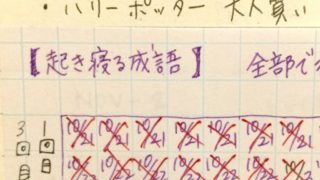 ・ハリーポッター 大人買い
【起き寝る成語】 全部で
3 1
回 回
目 目
10/21 10/21 10/21 10/21 10/21 10/21 10/21
10/22 10/22 10/22 10/22 10/22 10/22 10/22